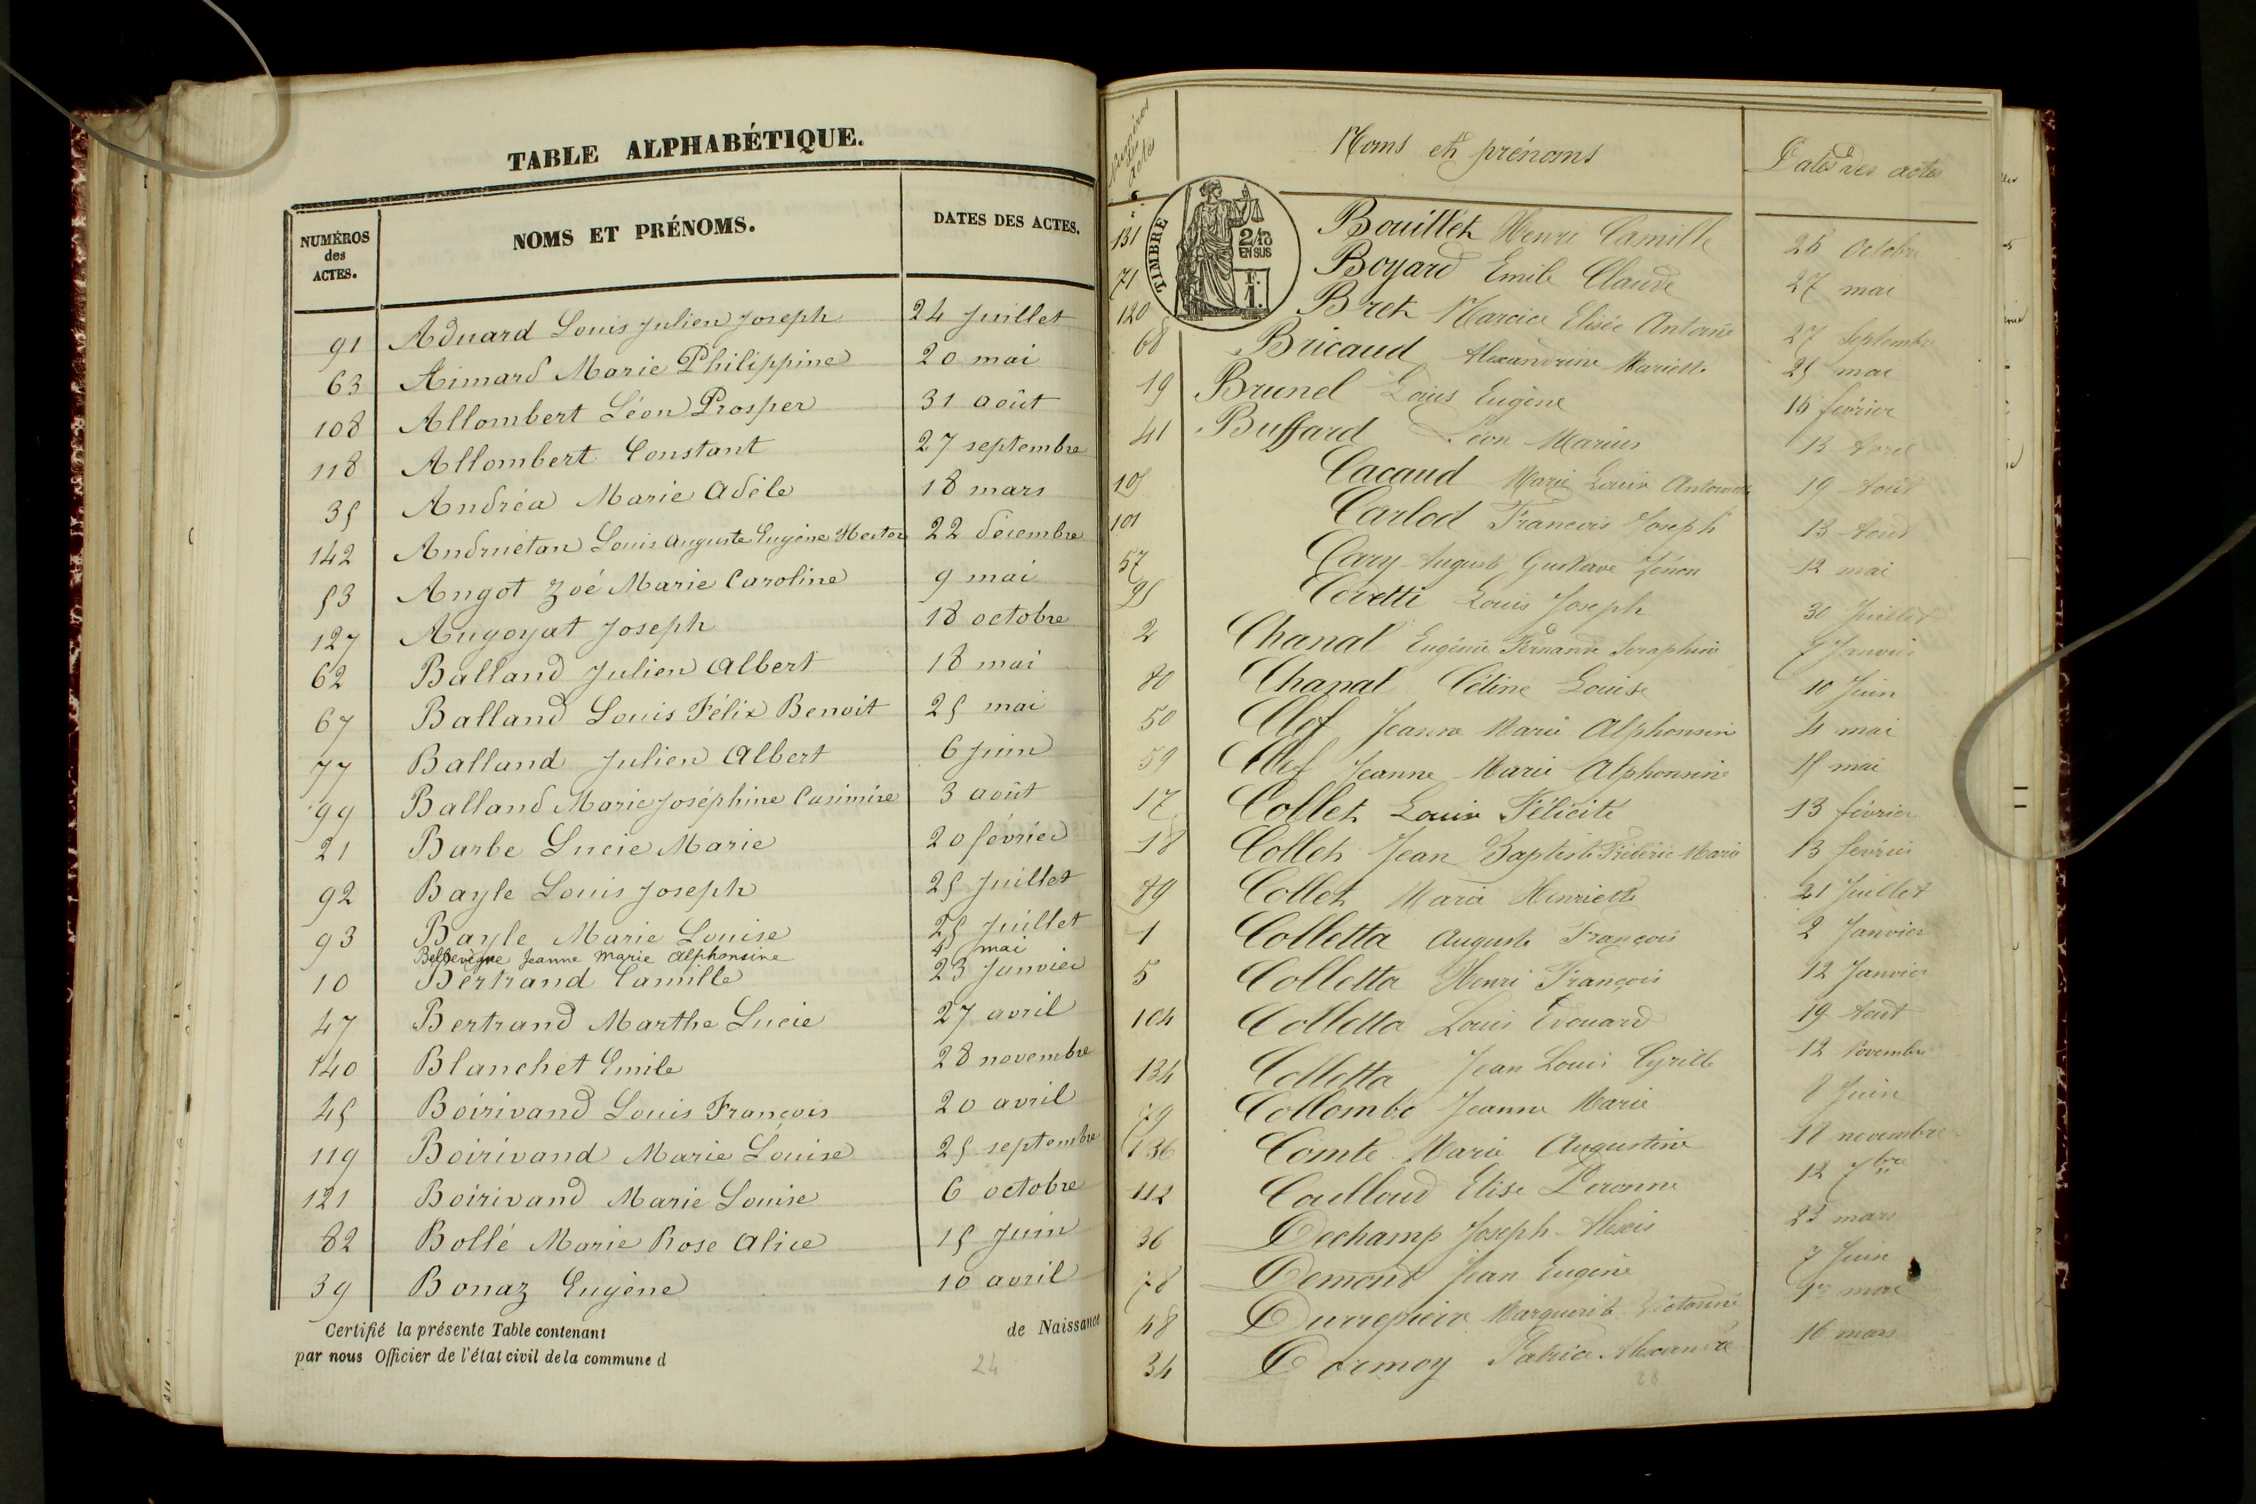 TABLE ALPHABÉTIQUE.
NUMÉROS des ACTES. NOMS ET PRÉNOMS. DATES DES ACTES.
91 Aduard Louis Julien Joseph 24 Juillet
63 Aimard Marie Philippine 20 mai
108 Allombert Léon Prosper 31 août
118 Allombert Constant 27 septembre
35 Andréa Marie Adèle 18 mars
142 Andruétan Louis Auguste Eugène Hector 22 décembre
53 Angot Zoé Marie Caroline 9 mai
127 Augoyat Joseph 18 octobre
62 Balland Julien Albert 18 mai
67 Balland Louis Félix Benoit 25 mai
77 Balland Julien Albert 6 Juin
99 Balland Marie Joséphine Casimire 3 août
21 Barbe Lucie Marie 20 février
92 Bayle Louis Joseph 25 Juillet
93 Bayle Marie Louise 25 Juillet
Bellevègue Jeanne Marie Alphonsine 4 mai
10 Bertrand Camille 23 Janvier
47 Bertrand Marthe Lucie 27 avril
140 Blanchet Emile 28 novembre
45 Boirivand Louis François 20 avril
119 Boirivand Marie Louise 25 septembre
121 Boirivand Marie Louise 6 octobre
82 Bollé Marie Rose Alice 15 Juin
39 Bonaz Eugène 10 avril
Certifié la présente Table contenant de Naissance
par nous Officier de l'état civil de la commune d
24
Numéros des actes Noms et prénoms Dates des actes
TIMBRE
2/10 EN SUS
1F.
131 Bouillet Henri Camille 26 Octobre
71 Boyard Emile Claude 27 mai
120 Bret Marcice Elisée Antoine 27 Septembre
68 Bricaud Alexandrine Mariette 25 mai
19 Brunel Louis Eugène 16 février
41 Buffard Léon Marius 13 Avril
105 Cacaud Marie Louise Antoinette 19 Août
101 Carlod François Joseph 13 Août
57 Cary Auguste Gustave Zénon 12 mai
95 Covetti Louis Joseph 30 Juillet
2 Chanal Eugénie Fernande Seraphine 7 Janvier
80 Chanal Céline Louise 10 Juin
50 Clef Jeanne Marie Alphonsine 4 mai
59 Clef Jeanne Marie Alphonsine 15 mai
17 Collet Louise Félicité 13 février
18 Collet Jean Baptiste Frédéric Marie 13 février
89 Collet Marie Henriette 21 Juillet
1 Colletta Auguste François 2 Janvier
5 Colletta Henri François 12 Janvier
104 Colletta Louis Edouard 19 Août
134 Colletta Jean Louis Cyrille 12 Novembre
79 Collombo Jeanne Marie 8 Juin
136 Comte Marie Augustine 18 novembre
112 Coulloud Elise Peronne 12 7bre
36 Dechamp Joseph Alexis 23 mars
78 Demond Jean Eugène 7 Juin
48 Durrepierre Marguerite Victorine 1er mai
34 Dormoy Patrice Alexandre 16 mars
28